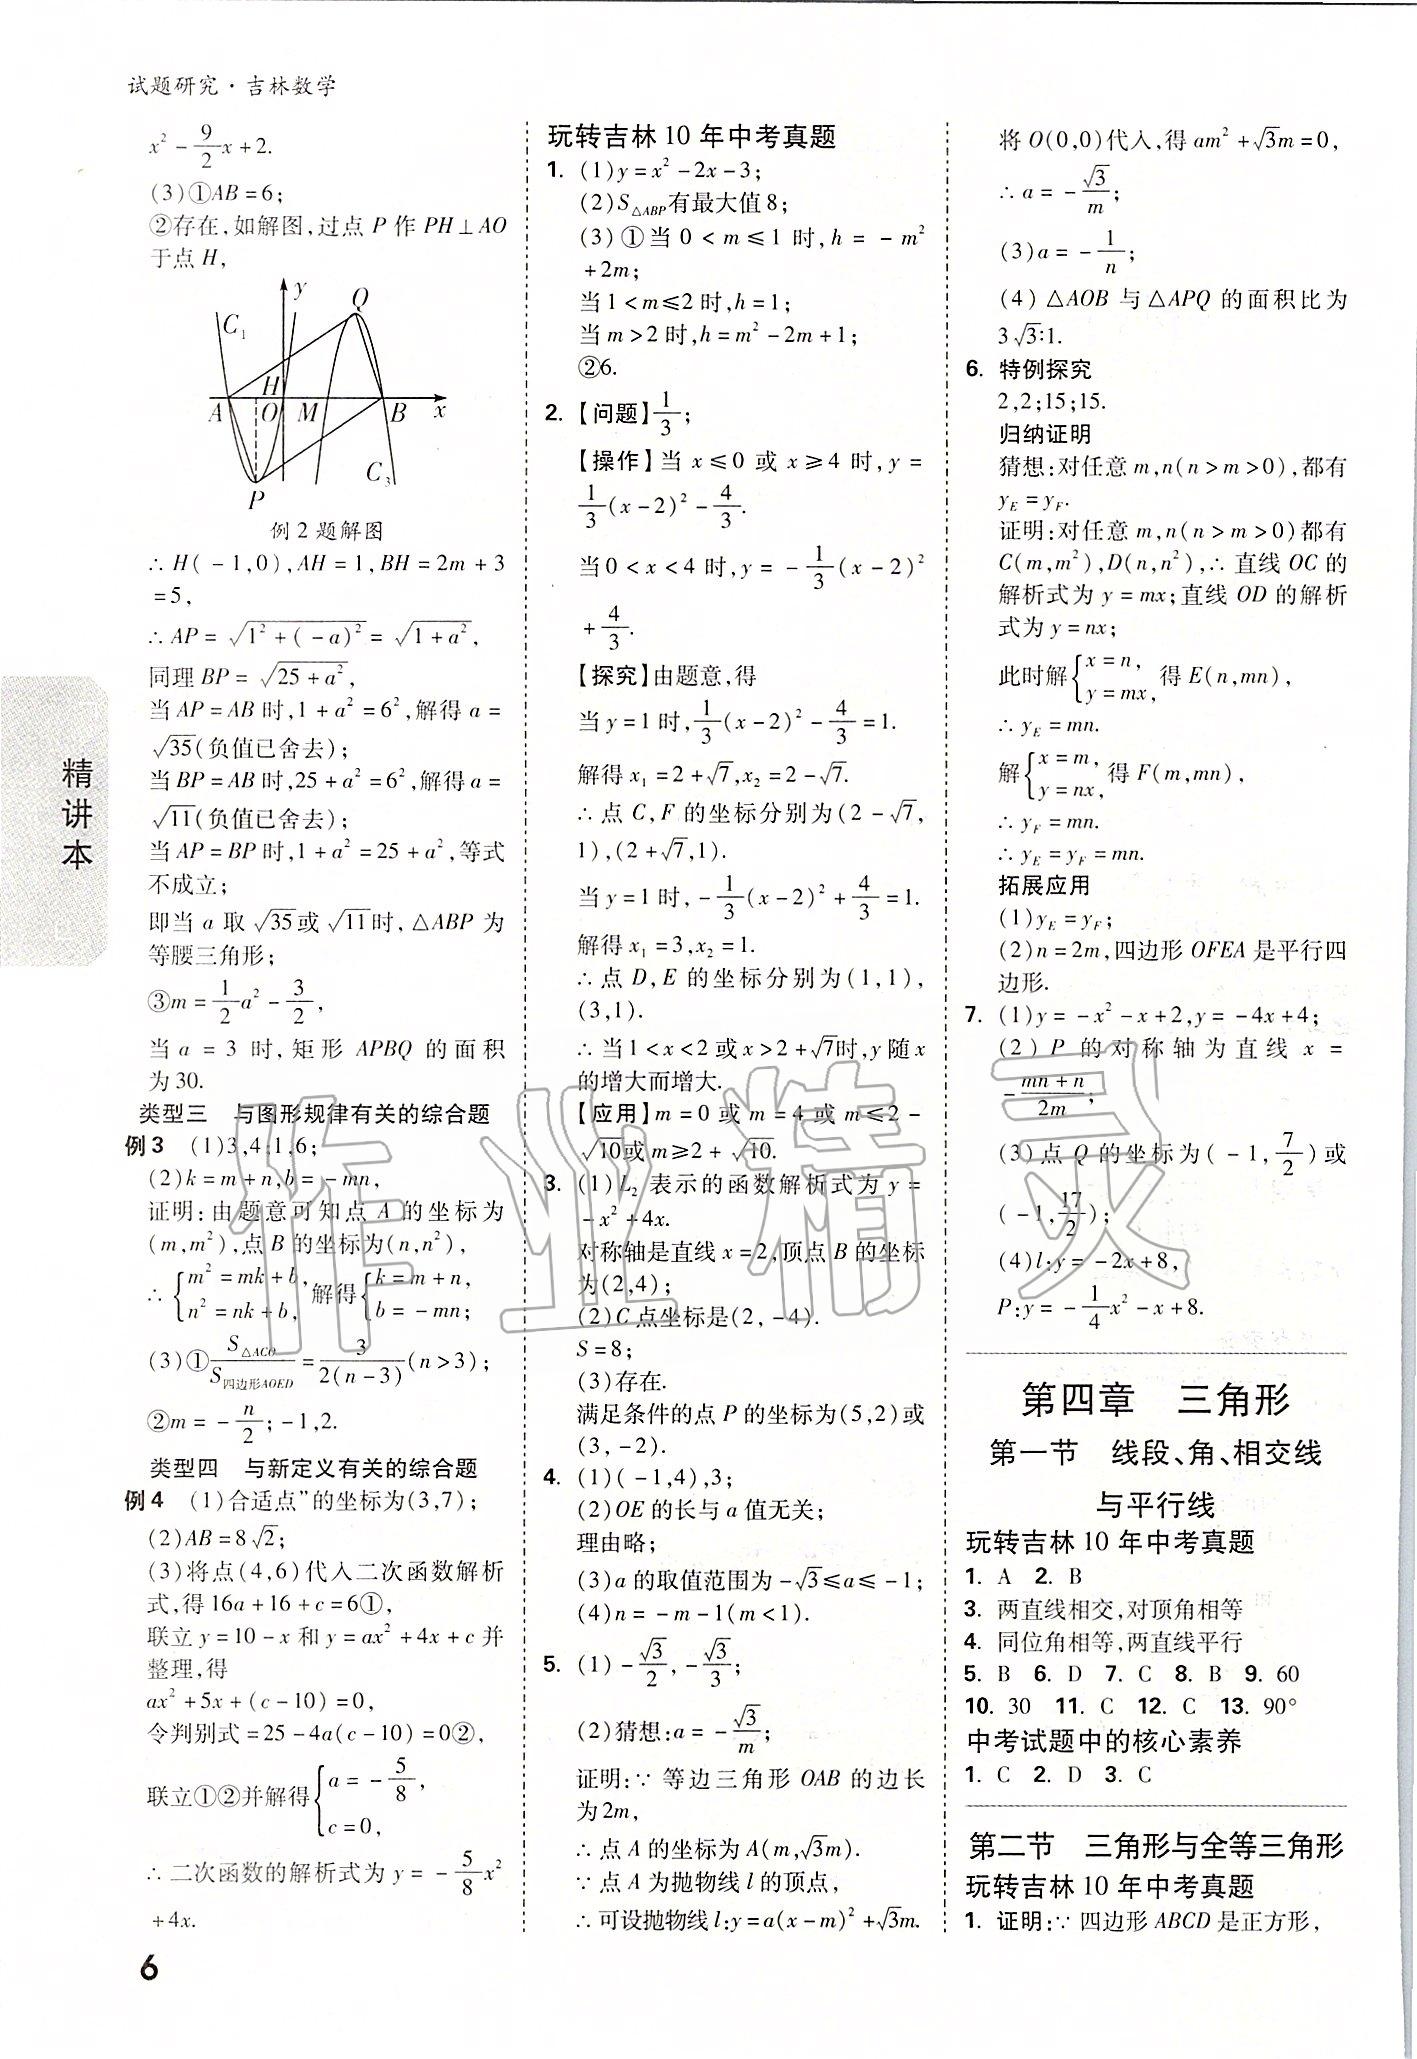 试题研究·吉林数学
x² - 9/2 x + 2.
(3)①AB = 6;
②存在,如解图,过点 P 作 PH⊥AO
于点 H,
y
Q
C₁
H
A
O
M
B
x
P
C₃
例 2 题解图
∴ H( - 1,0),AH = 1,BH = 2m + 3
= 5,
∴ AP = √(1² + ( - a)²) = √(1 + a²),
同理 BP = √(25 + a²),
当 AP = AB 时,1 + a² = 6²,解得 a =
√35(负值已舍去);
当 BP = AB 时,25 + a² = 6²,解得 a =
√11(负值已舍去);
当 AP = BP 时,1 + a² = 25 + a²,等式
不成立;
即当 a 取 √35或 √11时,△ABP 为
等腰三角形;
③m = 1/2 a² - 3/2,
当 a = 3 时,矩形 APBQ 的面积
为 30.
类型三 与图形规律有关的综合题
例 3 (1)3,4;1,6;
(2)k = m + n,b = - mn,
证明:由题意可知点 A 的坐标为
(m,m²),点 B 的坐标为(n,n²),
∴ {m² = mk + b, n² = nk + b, 解得{k = m + n, b = - mn;
(3)① S△ACO/S四边形AOED = 3/(2(n - 3)) (n > 3);
②m = - n/2; - 1,2.
类型四 与新定义有关的综合题
例 4 (1)合适点”的坐标为(3,7);
(2)AB = 8√2;
(3)将点(4,6)代入二次函数解析
式,得 16a + 16 + c = 6①,
联立 y = 10 - x 和 y = ax² + 4x + c 并
整理,得
ax² + 5x + (c - 10) = 0,
令判别式 = 25 - 4a(c - 10) = 0②,
联立①②并解得{a = - 5/8, c = 0,
∴ 二次函数的解析式为 y = - 5/8 x²
+ 4x.
精讲本
6
玩转吉林 10 年中考真题
1. (1)y = x² - 2x - 3;
(2)S△ABP有最大值 8;
(3)①当 0 < m ≤ 1 时,h = - m²
+ 2m;
当 1 < m ≤ 2 时,h = 1;
当 m > 2 时,h = m² - 2m + 1;
②6.
2. 【问题】1/3;
【操作】当 x ≤ 0 或 x ≥ 4 时,y =
1/3 (x - 2)² - 4/3.
当 0 < x < 4 时,y = - 1/3 (x - 2)²
+ 4/3.
【探究】由题意,得
当 y = 1 时,1/3 (x - 2)² - 4/3 = 1.
解得 x₁ = 2 + √7,x₂ = 2 - √7.
∴ 点 C,F 的坐标分别为(2 - √7,
1),(2 + √7,1).
当 y = 1 时,- 1/3 (x - 2)² + 4/3 = 1.
解得 x₁ = 3,x₂ = 1.
∴ 点 D,E 的坐标分别为(1,1),
(3,1).
∴ 当 1 < x < 2 或 x > 2 + √7时,y 随 x
的增大而增大.
【应用】m = 0 或 m = 4 或 m ≤ 2 -
√10或 m ≥ 2 + √10.
3. (1)L₂ 表示的函数解析式为 y =
- x² + 4x.
对称轴是直线 x = 2,顶点 B 的坐标
为(2,4);
(2)C 点坐标是(2, - 4).
S = 8;
(3)存在.
满足条件的点 P 的坐标为(5,2)或
(3, - 2).
4. (1)( - 1,4),3;
(2)OE 的长与 a 值无关;
理由略;
(3)a 的取值范围为 - √3 ≤ a ≤ - 1;
(4)n = - m - 1(m < 1).
5. (1) - √3/2, - √3/3;
(2)猜想:a = - √3/m;
证明:∵ 等边三角形 OAB 的边长
为 2m,
∴ 点 A 的坐标为 A(m,√3m).
∵ 点 A 为抛物线 l 的顶点,
∴ 可设抛物线 l:y = a(x - m)² + √3m.
将 O(0,0)代入,得 am² + √3m = 0,
∴ a = - √3/m;
(3)a = - 1/n;
(4) △AOB 与 △APQ 的面积比为
3√3∶1.
6. 特例探究
2,2;15;15.
归纳证明
猜想:对任意 m,n(n > m > 0),都有
yE = yF.
证明:对任意 m,n(n > m > 0)都有
C(m,m²),D(n,n²),∴ 直线 OC 的
解析式为 y = mx;直线 OD 的解析
式为 y = nx;
此时解{x = n, y = mx, 得 E(n,mn),
∴ yE = mn.
解{x = m, y = nx, 得 F(m,mn),
∴ yF = mn.
∴ yE = yF = mn.
拓展应用
(1)yE = yF;
(2)n = 2m,四边形 OFEA 是平行四
边形.
7. (1)y = - x² - x + 2,y = - 4x + 4;
(2) P 的对称轴为直线 x =
- (mn + n)/2m;
(3)点 Q 的坐标为( - 1,7/2)或
( - 1,17/2);
(4)l:y = - 2x + 8,
P:y = - 1/4 x² - x + 8.
第四章 三角形
第一节 线段、角、相交线
与平行线
玩转吉林 10 年中考真题
1. A 2. B
3. 两直线相交,对顶角相等
4. 同位角相等,两直线平行
5. B 6. D 7. C 8. B 9. 60
10. 30 11. C 12. C 13. 90°
中考试题中的核心素养
1. C 2. D 3. C
第二节 三角形与全等三角形
玩转吉林 10 年中考真题
1. 证明:∵ 四边形 ABCD 是正方形,
作业精灵